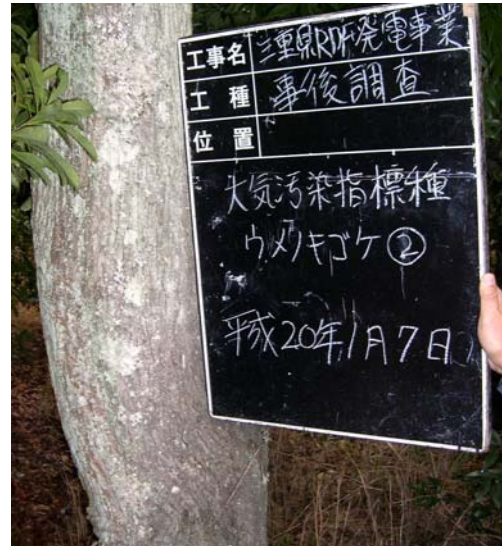 工事名 三重県RDF発電事業
工種 事後調査
位置
大気汚染指標種
ウメノキゴケ②
平成20年1月7日